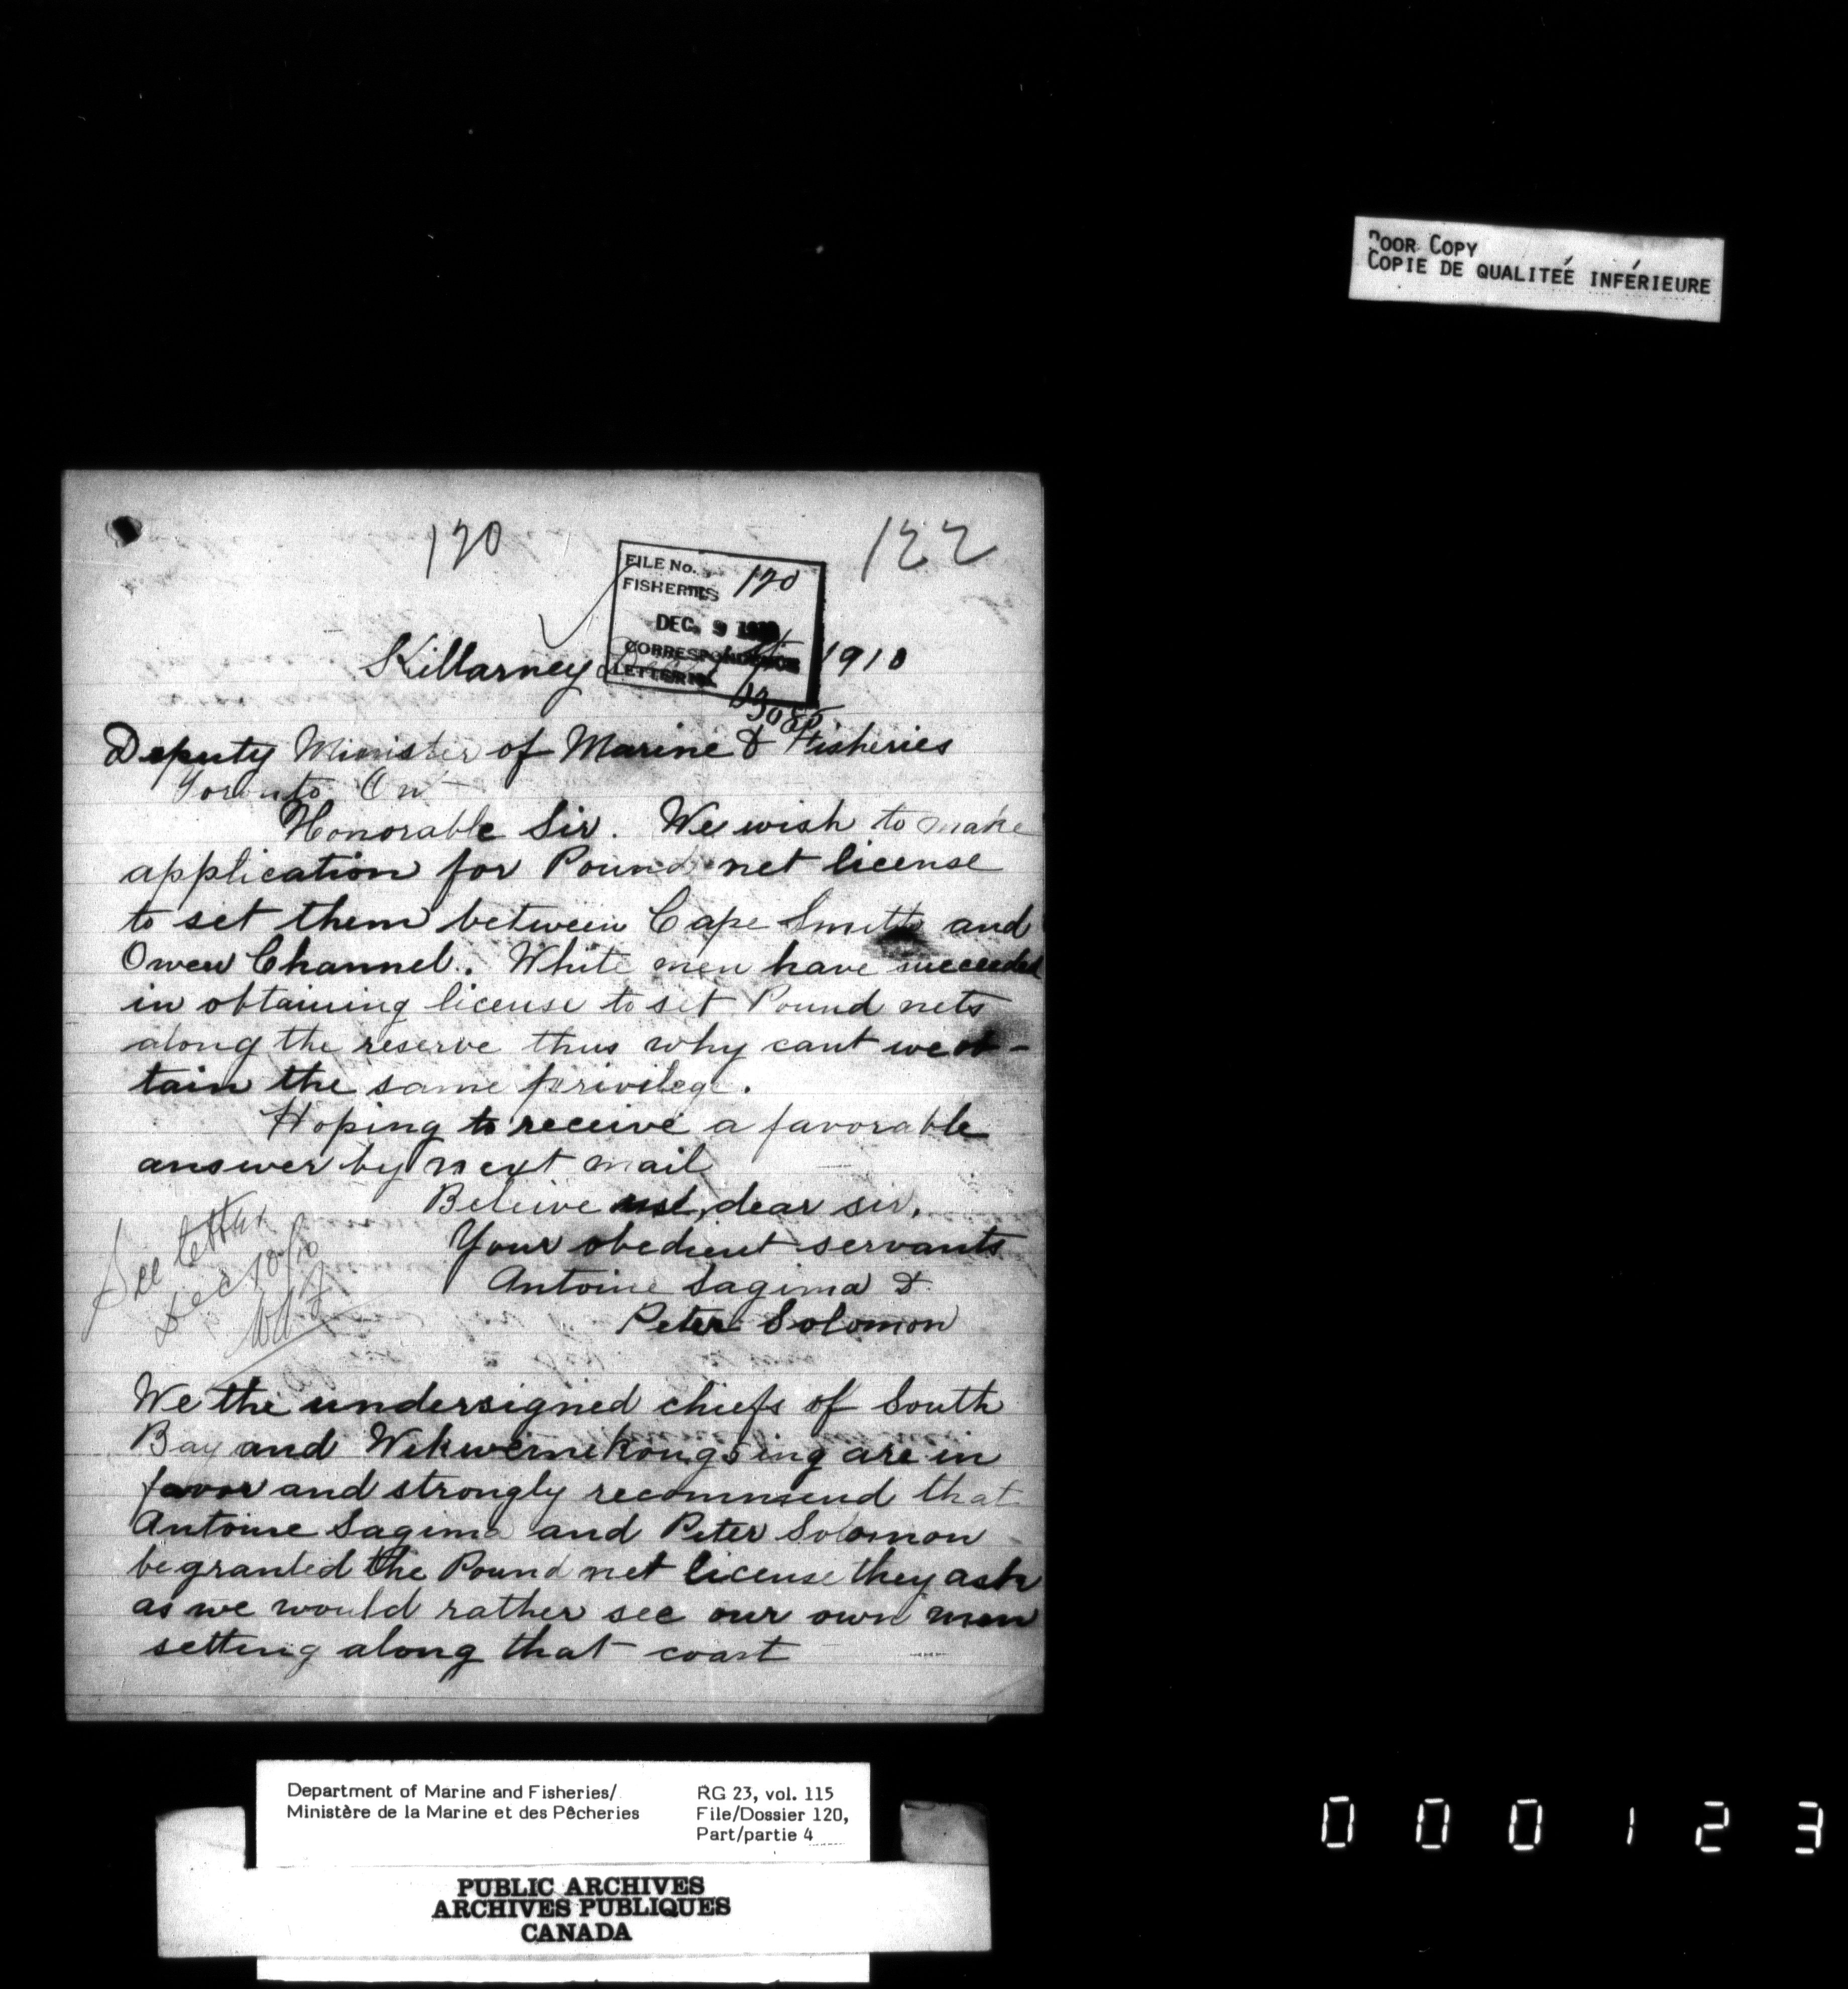 POOR COPY
COPIE DE QUALITEÉ INFÉRIEURE
120
122
FILE No. 120
FISHERIES
DEC. 9 1910
CORRESPONDENCE
LETTER No.
Killarney 1910
Deputy Minister of Marine & Fisheries
Toronto On
Honorable Sir. We wish to make
application for Pound net license
to set them between Cape Smith and
Owen Channel. White men have succeeded
in obtaining license to set Pound nets
along the reserve thus why cant we ob-
tain the same privilege.
Hoping to receive a favorable
answer by next mail
Beleive us, dear sir,
Your obedient servants
Antoine Sagima &
Peter Solomon
See letter
Dec 10/10
We the undersigned chiefs of South
Bay and Wekwemekongsing are in
favor and strongly recommend that
Antoine Sagima and Peter Solomon
be granted the Pound net license they ask
as we would rather see our own men
setting along that coast
Department of Marine and Fisheries/
Ministère de la Marine et des Pêcheries
RG 23, vol. 115
File/Dossier 120,
Part/partie 4
PUBLIC ARCHIVES
ARCHIVES PUBLIQUES
CANADA
000123